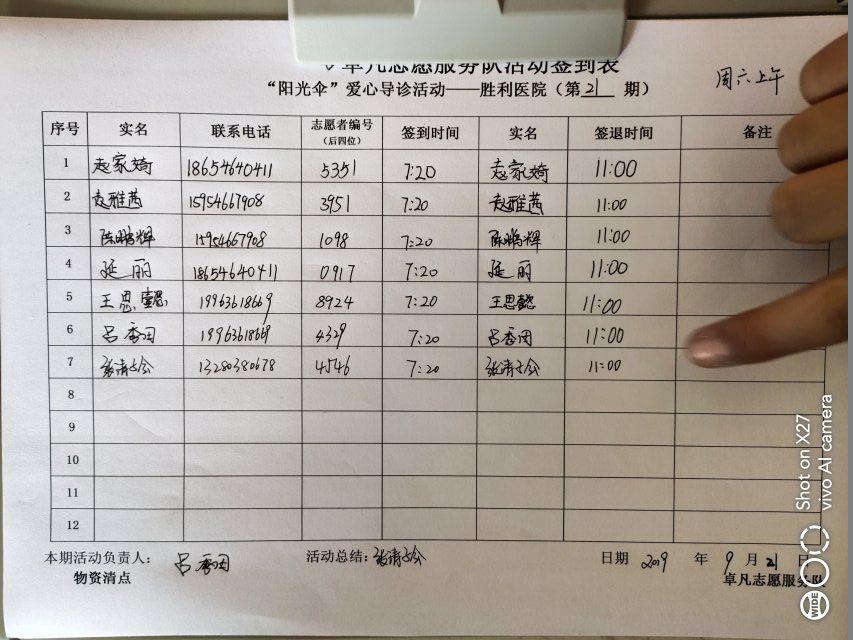 卓凡志愿服务队活动签到表
周六上午
“阳光伞”爱心导诊活动——胜利医院（第 21 期）
序号 实名 联系电话 志愿者编号（后四位） 签到时间 实名 签退时间 备注
1 赵家琦 18654640411 5351 7:20 赵家琦 11:00
2 赵雅茜 15954667908 3951 7:20 赵雅茜 11:00
3 陈鹏辉 15954667908 1098 7:20 陈鹏辉 11:00
4 延丽 18654640411 0917 7:20 延丽 11:00
5 王思懿 19963618669 8924 7:20 王思懿 11:00
6 吕香田 19963618669 4329 7:20 吕香田 11:00
7 张清 13280380678 4546 7:20 张清 11:00
8
9
10
11
12
本期活动负责人： 吕香田 活动总结: 张清 日期 2019 年 9 月 21 日
物资清点 卓凡志愿服务队
Shot on X27
vivo AI camera
WIDE